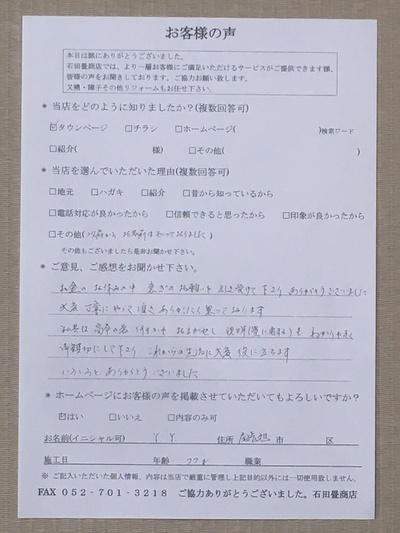 お客様の声
本日は誠にありがとうございました。
石田畳商店では、より一層お客様にご満足いただけるサービスがご提供できます様、
皆様の声をお聞きしております。ご協力お願い致します。
又襖・障子その他リフォームもお任せ下さい。
* 当店をどのように知りましたか？(複数回答可)
☑タウンページ □チラシ □ホームページ( )検索ワード
□紹介( 様) □その他( )
* 当店を選んでいただいた理由(複数回答可)
□地元 □ハガキ □紹介 □昔から知っているから
□電話対応が良かったから □信頼できると思ったから □印象が良かったから
□その他(以前から お名前は知っておりました)
その他もございましたら是非お聞かせ下さい。
* ご意見、ご感想をお聞かせ下さい。
お盆の お休みの中 急ぎの お願いを 引き受けて下さり ありがとうございました
大変 丁寧に やって頂き ありがたく 思っております
親切にして下さり これからの生活に大変 役に立ちます
いろいろと ありがとう ございました
* ホームページにお客様の声を掲載させていただいてもよろしいですか？
☑はい □いいえ □内容のみ可
お名前(イニシャル可) Y Y 住所 尾張旭 市 区
施工日 年齢 77才 職業
※ ご記入いただいた個人情報、内容は当店で厳重に管理し上記目的以外には一切使用致しません。
FAX 052－701－3218 ご協力ありがとうございました。石田畳商店